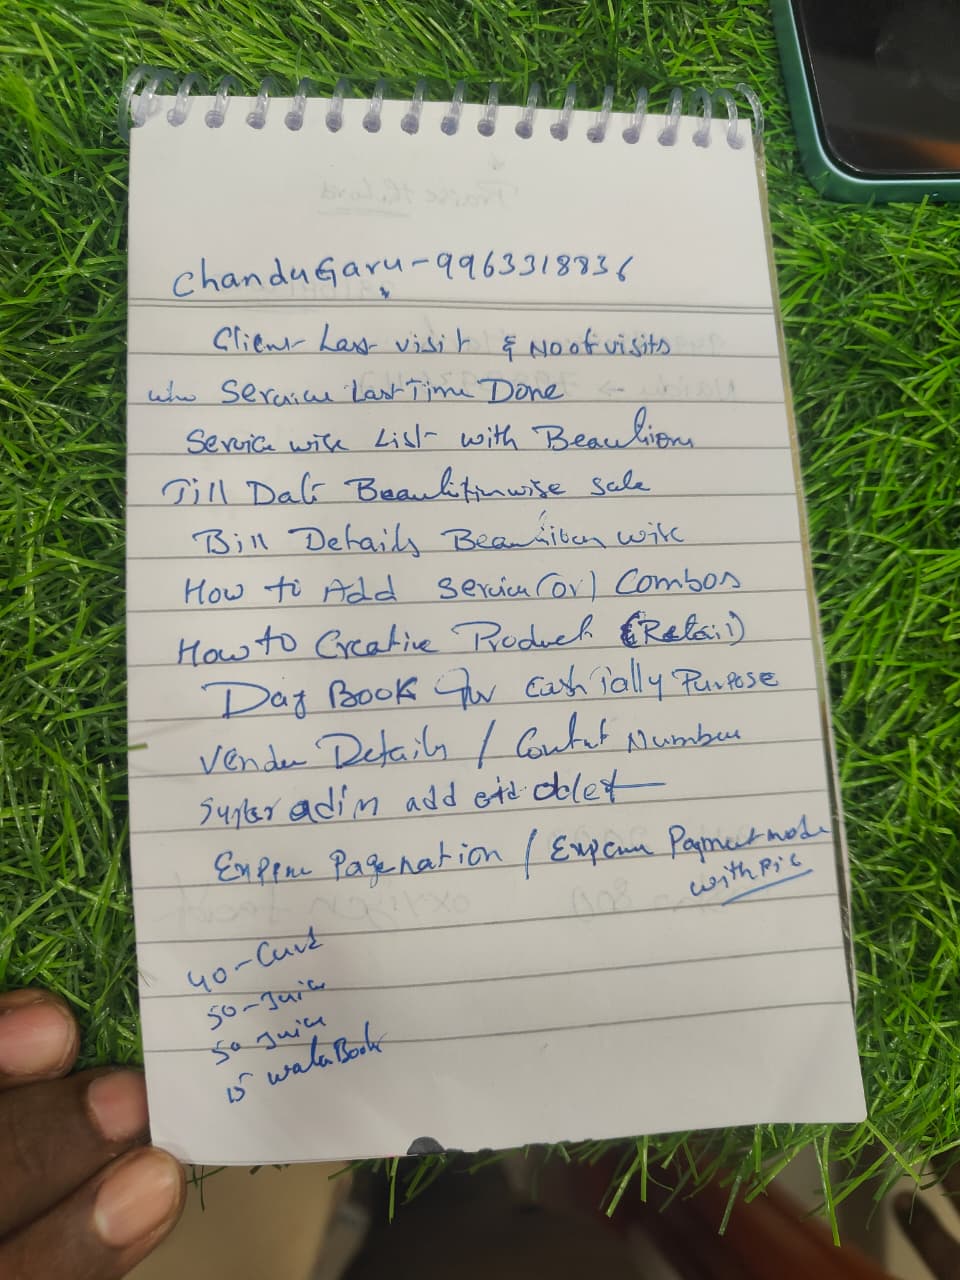 Chandu Garu - 9963318836
Client Last visit & No of visits
who Service Last Time Done
Service wise List with Beaution
Till Date Beautitinwise sale
Bill Details Beautition wise
How to Add Service (or) Combos
How to Creative Product (Retail)
Day Book for Cash Tally Purpose
Vender Details / Contact Number
add
Expense Pagenation / Expense Payment mode
with Pic
40 - Curd
50 - Juice
50 Juice
15 water Book